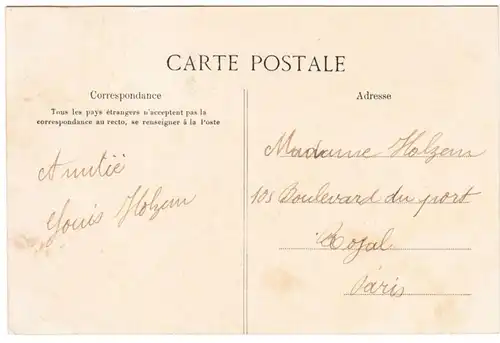 CARTE POSTALE
Correspondance
Tous les pays étrangers n'acceptent pas la
correspondance au recto, se renseigner à la Poste
Amitié
Louis Holzem
Adresse
Madame Holzem
105 Boulevard du port
Royal
Paris